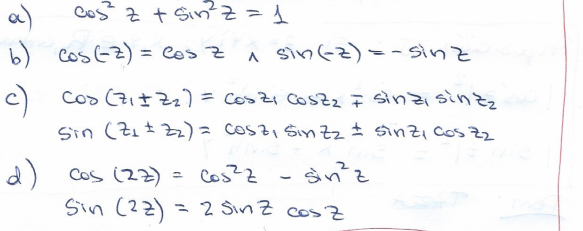 a) cos² z + sin² z = 1
b) cos(-z) = cos z ∧ sin(-z) = - sin z
c) cos (z₁ ± z₂) = cos z₁ cos z₂ ∓ sin z₁ sin z₂
sin (z₁ ± z₂) = cos z₁ sin z₂ ± sin z₁ cos z₂
d) cos (2z) = cos² z - sin² z
sin (2z) = 2 sin z cos z